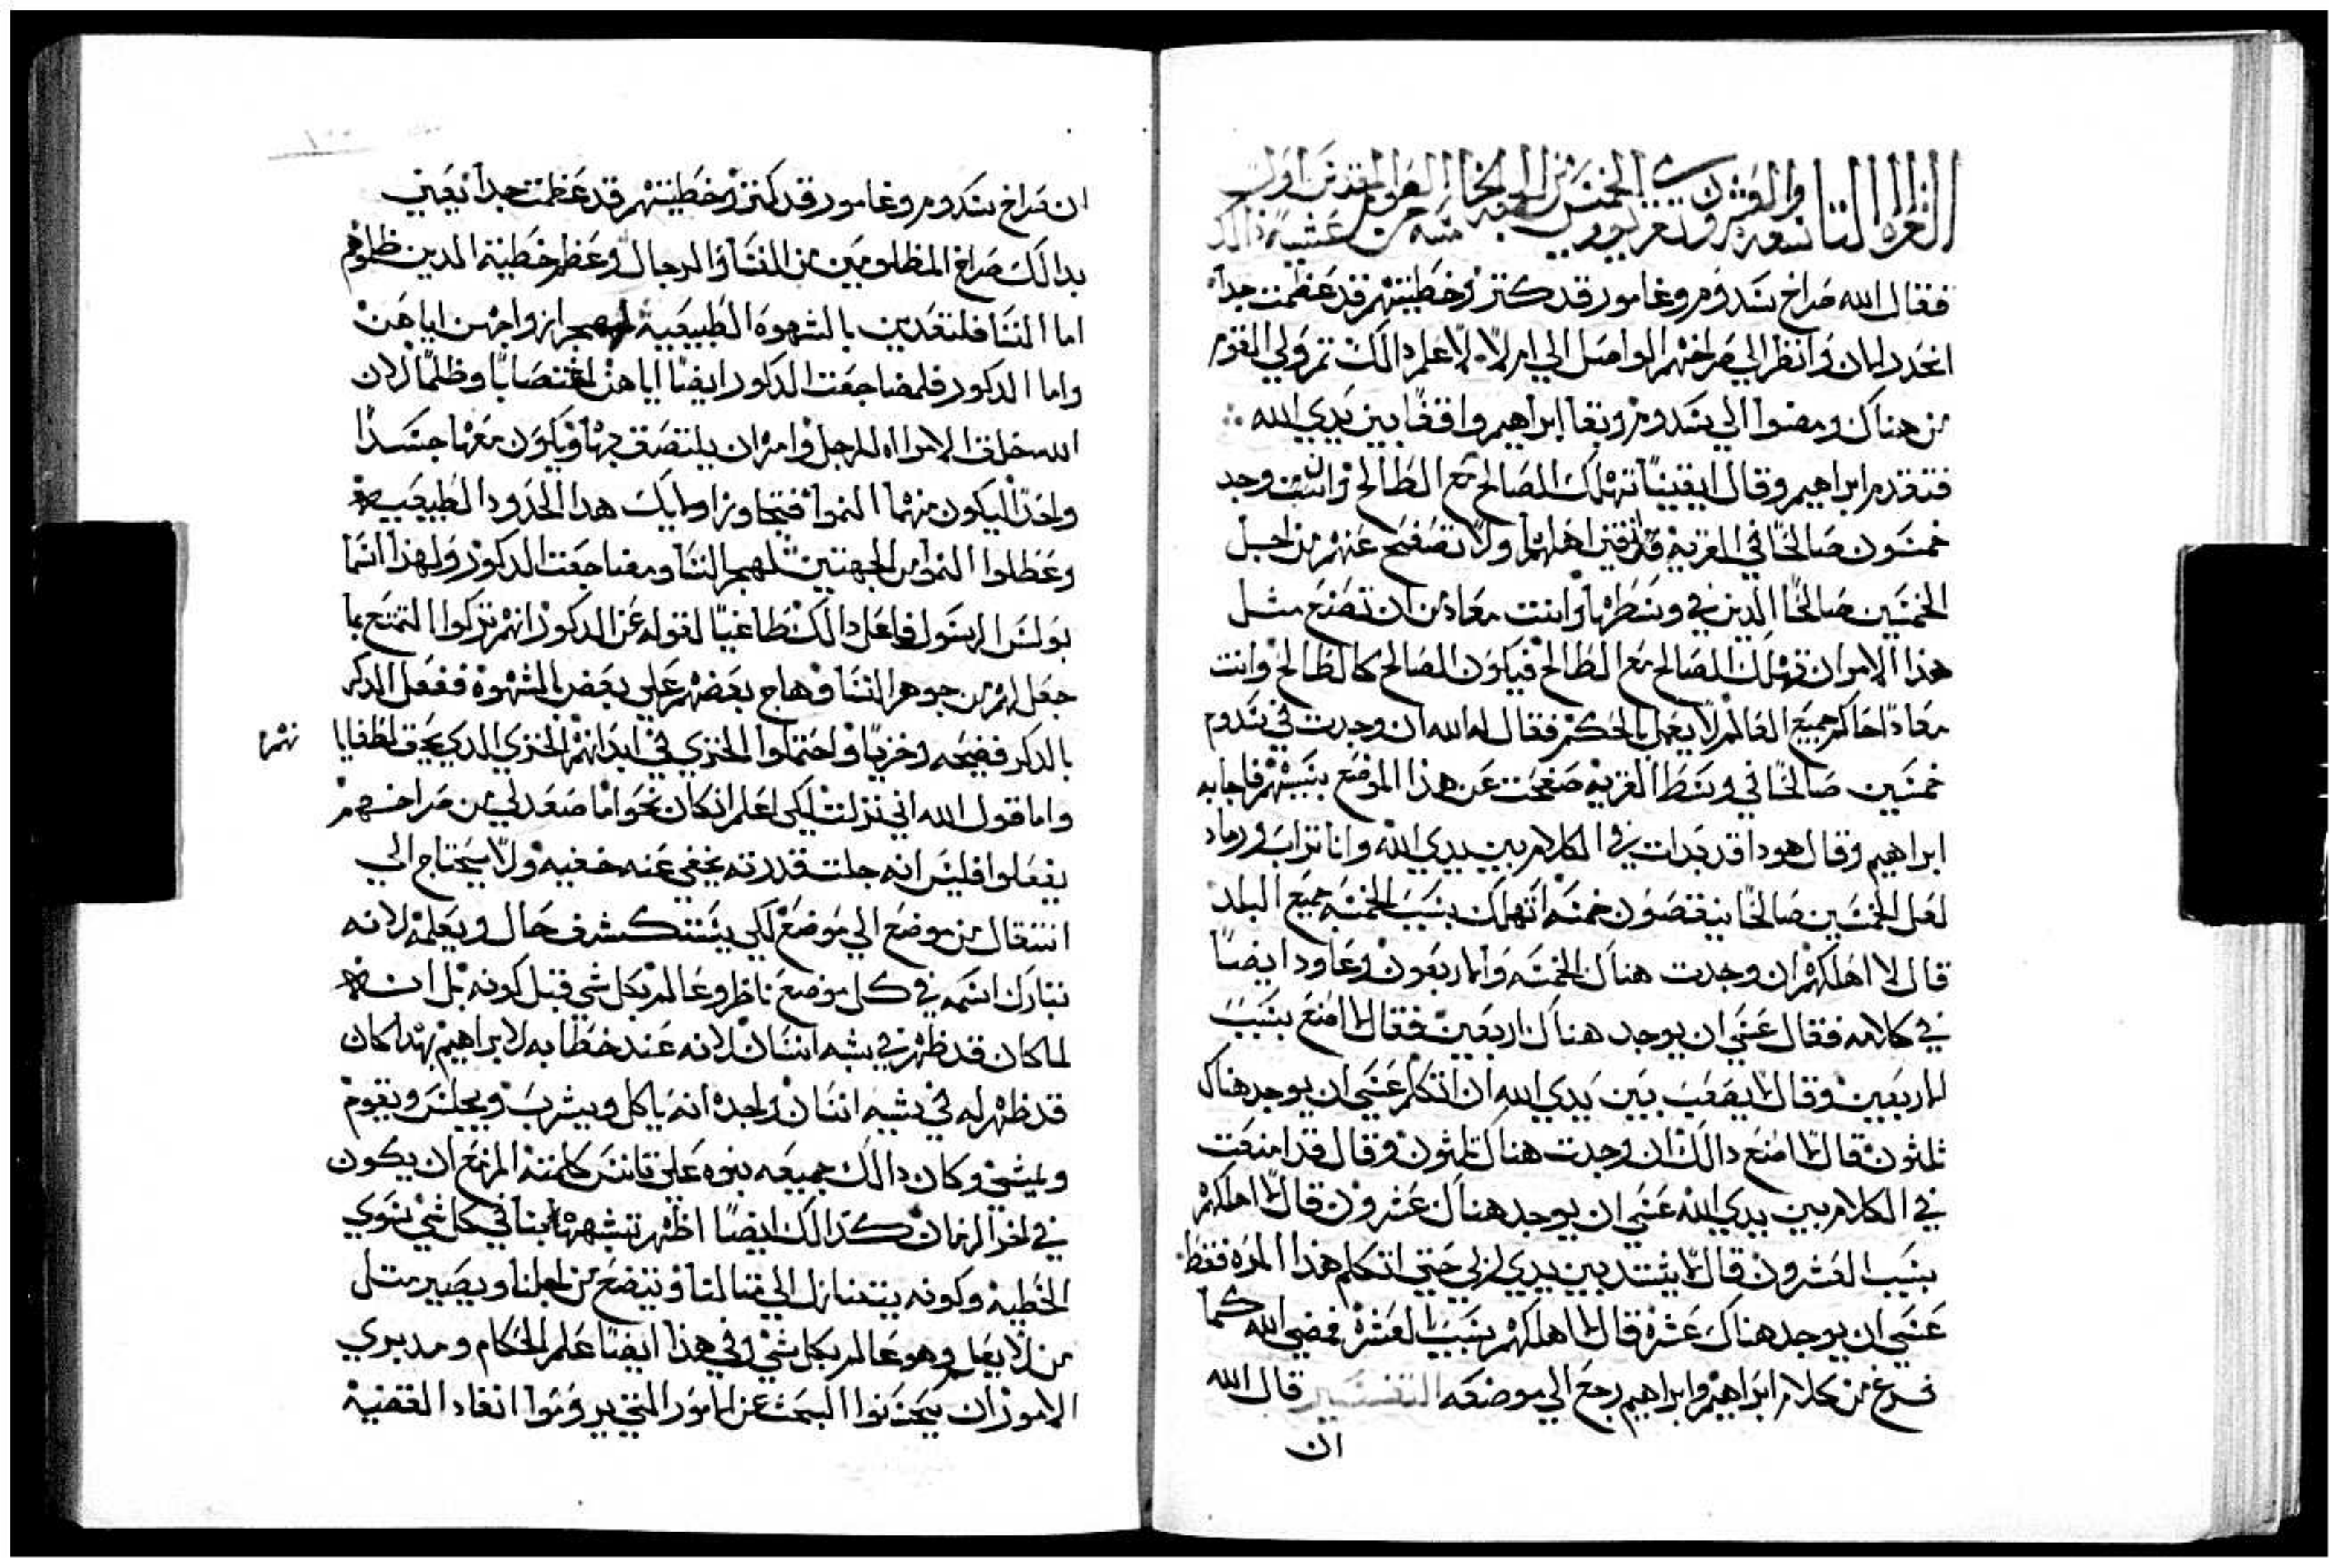 القراه التاسعه والعشرون
فقال الله صراخ سدوم وغامور قد كتر وخطيتهم قد عظمت جداً
انحدر الان وانظر الي صراخهم الواصل الي ام لا لاعلم دالك تم ولي القوم
من هناك ومضوا الي سدوم وبقا ابراهيم واقفاً بين يدي الله
فتقدم ابراهيم وقال ايقيناً تهلك الصالح مع الطالح وان وجد
خمسون صالحاً في القريه اهلهم ولا تصفح عنهم من اجل
الخمسين صالحاً الدين في وسطها وانت معاد من ان تصنع مثل
هذا الامر ان تهلك الصالح مع الطالح فيكون الصالح كالطالح وانت
معاد احاكم جميع العالم لا يعمل بالحكم فقال له الله ان وجدت في سدوم
خمسين صالحاً في وسط القريه صفحت عن هذا الموضع بسببهم فاجابه
ابراهيم وقال هودا قد بدات في الكلام بين يدي الله وانا تراب ورماد
لعل الخمسين صالحاً ينقصون خمسه اتهلك بسبب الخمسه جميع البلد
قال لا اهلكهم ان وجدت هناك الخمسه والاربعون وعاود ايضاً
في كلامه فقال عسي ان يوجد هناك اربعين فقال لا امنع بسبب
الاربعين وقال لا يصعب بين يدي الله ان اتكلم عسي ان يوجد هناك
تلتون قال لا امنع دالك ان وجدت هناك تلتون وقال قد امنعت
في الكلام بين يدي الله عسي ان يوجد هناك عشرون قال لا اهلكهم
بسبب العشرون قال لا يشتد بين يدي لربي حتي اتكلم هذا المره فقط
عسي ان يوجد هناك عشره قال لا اهلكهم بسبب العشره فمضي الله كما
فرغ من كلام ابراهيم وابراهيم رجع الي موضعه التفسير قال الله
ان
ان صراخ سدوم وغامور قد كتر وخطيتهم قد عظمت جداً يعني
بدالك صراخ المظلومين من النسا والرجال وعظم خطية الدين ظلموهم
اما النسا فلتعديهن بالشهوه الطبيعيه ازواجهن اياهن
واما الدكور فلمضاجعت الدكور ايضاً اياهن اغتصاباً وظلماً لان
الله خلق الامراه للرجل وامر ان يلتصق بها ويكون معها جسداً
واحداً ليكون منهما النموا فتجاوزا وليك هدا الحدود الطبيعيه
وعظلوا النموا من الجهتين النسا ومضاجعت الدكور ولهذا اسما
بولس الرسول فاعل دالك طاغياً لقوله عن الدكور انهم تركوا التمتع بما
جعل لهم من جوهر النسا وهاج بعضهم علي بعض بالشهوة ففعل الدكر
بالدكر فضيحه وخزياً واحتملوا الخزي في ابدانهم الخزي الدي يحق لطغايا
واما قول الله اني نزلت لكي اعلم ان كان نحو ما صعد لي من صراخهم
يفعلوا فليس انه جلت قدرته يخفي عنه خفيه ولا يحتاج الي
انتقال من موضع الي موضع لكي يستكشف حال ويعلمه لانه
تبارك اسمه في كل موضع ناظر وعالم بكل شي قبل كونه بل ان
لما كان قد ظهر في شبه انسان لانه عند خطابه لابراهيم بهدا كان
قد ظهر له في شبه انسان واحد انه ياكل ويشرب ويجلس ويقوم
ويمشي وكان دالك جميعه بنوه علي تانس كلمته المزمع ان يكون
في اخر الزمان كدالك ايضاً اظهر تشبهه بنا في كل شي سوي
الخطيه وكونه يتنازل الي متالنا ويتضع من اجلنا ويصير متل
من لا يعلم وهو عالم بكل شي وفي هذا ايضاً علم الحكام ومدبري
الامور ان يحسنوا البحث عن الامور التي يروموا انفاد القضيه